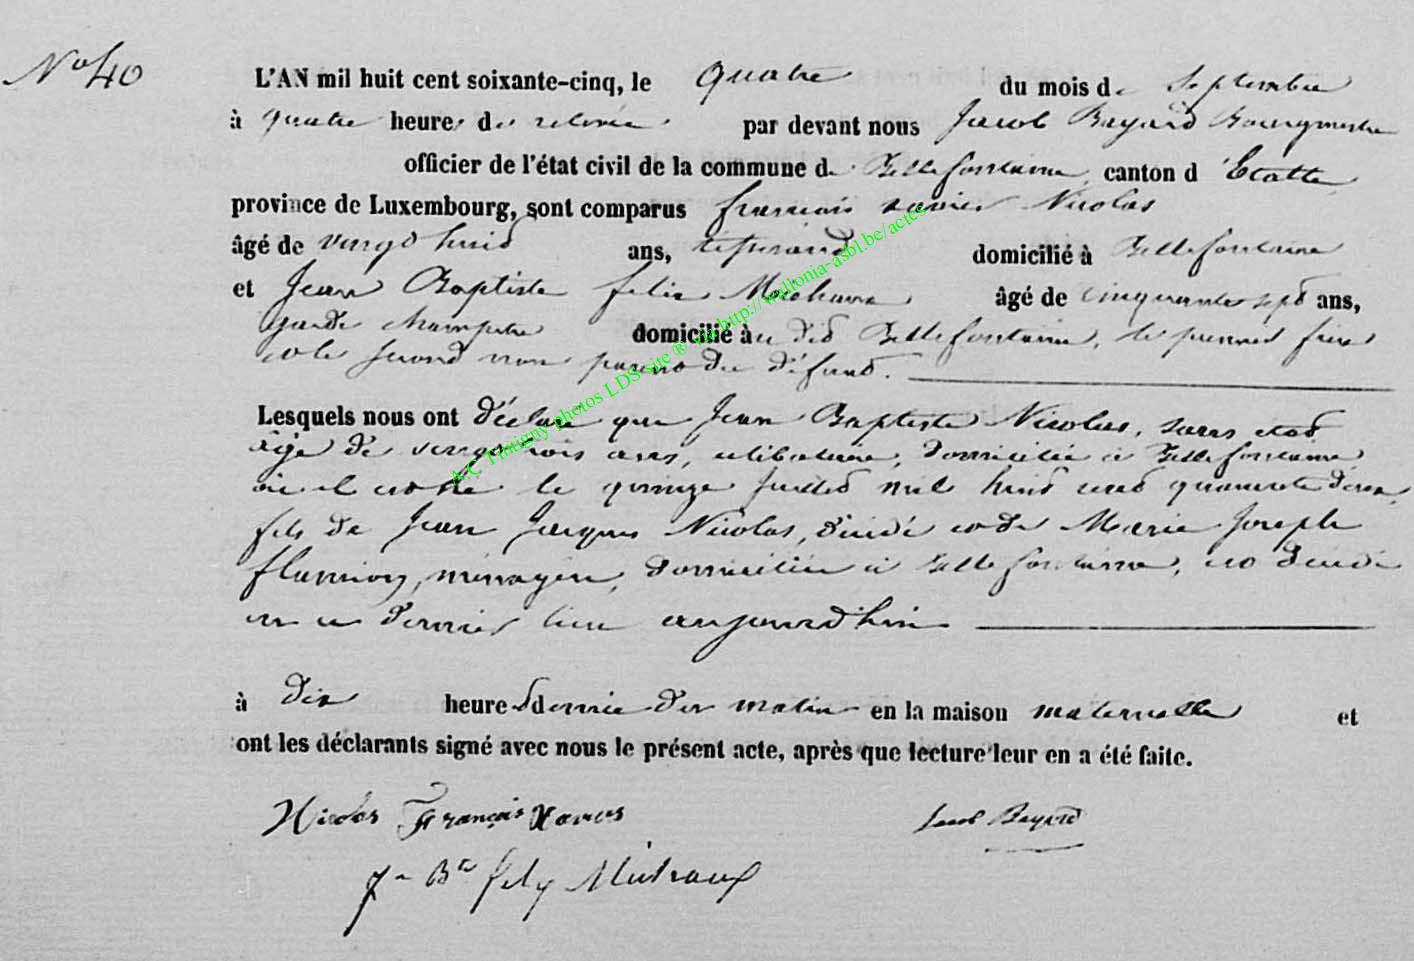 No 40
L'AN mil huit cent soixante-cinq, le quatre du mois de Septembre
à quatre heures de relevée par devant nous Jacob Bayard Bourgmestre
officier de l'état civil de la commune de Bellefontaine canton d'Etalle
province de Luxembourg, sont comparus françois xavier Nicolas
âgé de vingt huit ans, tisserand domicilié à Bellefontaine
et Jean Baptiste felix âgé de cinquante sept ans,
garde champetre domicilié au dit Bellefontaine, le premier frère
et le second non parent du défunt.
Lesquels nous ont déclaré que Jean Baptiste Nicolas, sans etat
âgé de vingt trois ans, celibataire, domicilié à Bellefontaine
où il est né le quinze Juillet mil huit cent quarante deux,
fils de Jean Jacques Nicolas, décédé et de Marie Joseph
flamion, ménagère, domiciliée à Bellefontaine, est décédé
en ce dernier lieu aujourd'hui
à dix heures du matin en la maison maternelle et
ont les déclarants signé avec nous le présent acte, après que lecture leur en a été faite.
Nicolas François Xavier Jacob Bayard
J n Bte Felix
A.C. Tintigny photos LDS site ® via http://wallonia-asbl.be/actes